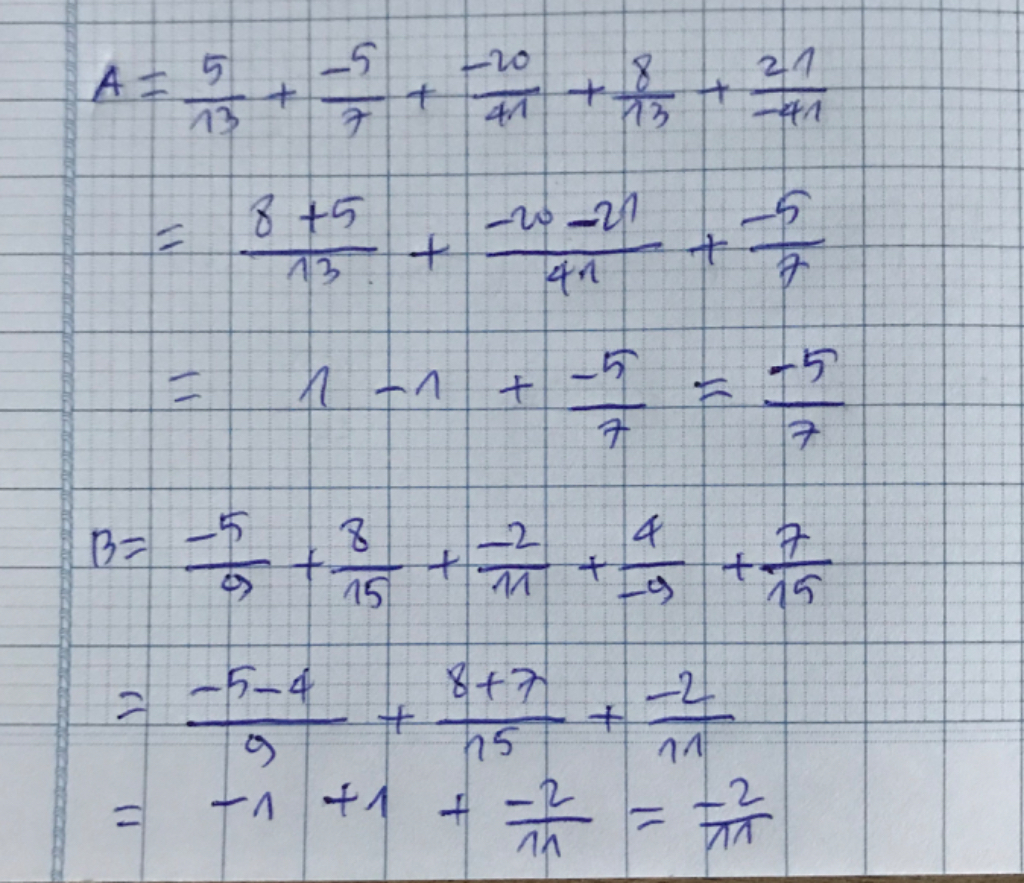 A = 5/13 + -5/7 + -20/41 + 8/13 + 21/-41
= 8+5/13 + -20-21/41 + -5/7
= 1 -1 + -5/7 = -5/7
B= -5/9 + 8/15 + -2/11 + 4/-9 + 7/15
= -5-4/9 + 8+7/15 + -2/11
= -1 +1 + -2/11 = -2/11